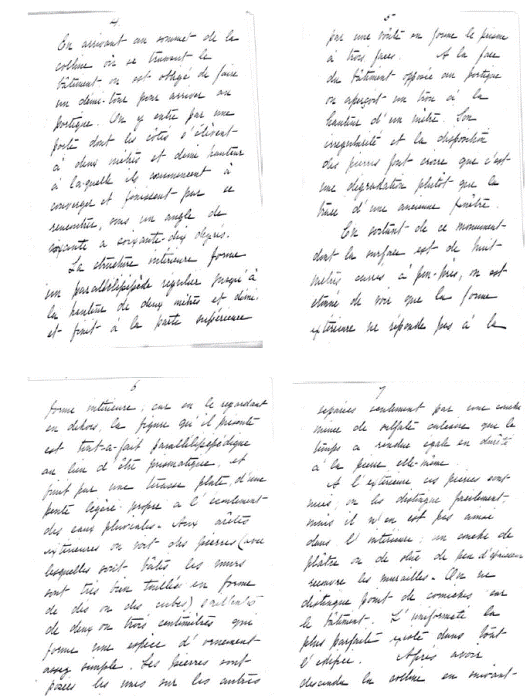 4
En arrivant au sommet de la
colline où se trouvent le
bâtiment on est obligé de faire
un demi-tour pour arriver au
portique. On y entre par une
porte dont les côtés s'élèvent
à deux mètres et demi hauteur
à laquelle ils commencent à
converger et finissent par se
rencontrer, sous un angle de
soixante à soixante-dix degrés.
La structure intérieure forme
un parallélépipède régulier jusqu'à
la hauteur de deux mètres et demi
et finit à la partie supérieure
5
par une voûte en forme de prisme
à trois faces. A la face
du bâtiment opposée au portique
on aperçoit un trou à la
hauteur d'un mètre. Son
irrégularité et la disposition
des pierres font croire que c'est
une dégradation plutôt que la
trace d'une ancienne fenêtre.
En sortant de ce monument
dont la surface est de huit
mètres carrés à peu-près, on est
étonné de voir que la forme
extérieure ne réponde pas à la
6
forme intérieure; car en le regardant
en dehors, la figure qu'il présente
est tout-à-fait parallélépipédique
au lieu d'être prismatique, et
finit par une terrasse plate, d'une
pente légère propre à l'écoulement
des eaux pluviales. Aux
extérieures on voit des pierres (avec
lesquelles sont bâtis les murs
sont très bien taillées en forme
de dés ou des cubes) saillantes
de deux ou trois centimètres que
forme une espèce d'ornement
assez simple. Les pierres sont
posées les unes sur les autres
7
séparées seulement par une couche
mince de sulfate calcaire que le
temps a rendue égale en dureté
à la pierre elle-même.
A l'extérieur ces pierres sont
nues, on les distingue facilement
mais il n'en est pas ainsi
dans l'intérieur; un couche de
plâtre ou de stuc de peu d'épaisseur
recouvre les murailles. On ne
distingue point de corniches sur
le bâtiment. L'uniformité la
plus parfaite existe dans tout
l'édifice. Après avoir
descendu la colline en suivant